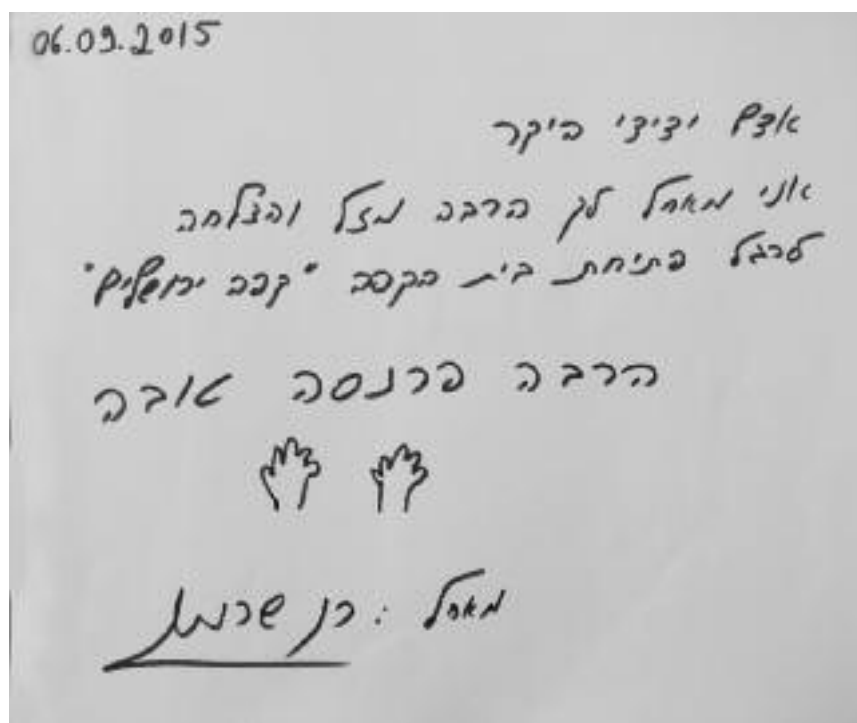 06.09.2015
אדם ידידי היקר
אני מאחל לך הרבה מזל והצלחה
לרגל פתיחת בית הקפה "קפה ירושלים"
הרבה פרנסה טובה
מאחל : רן